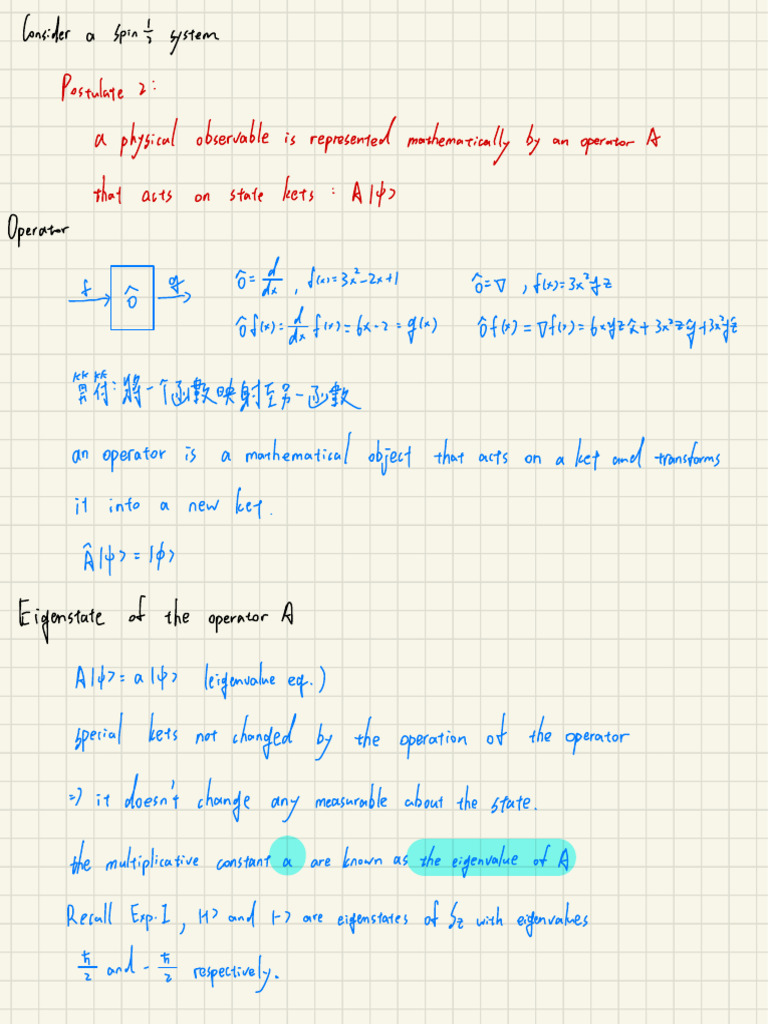 Consider a spin ½ system
Postulate 2:
a physical observable is represented mathematically by an operator A
that acts on state kets : A|ψ>
Operator
f Ô g Ô = d/dx , f(x)=3x²-2x+1 Ô=∇ , f(x)=3x²yz
Ôf(x)= d/dx f(x)=6x-2=g(x) Ôf(x)=∇f(x)=6xyz x̂+3x²z ŷ+3x²y ẑ
算符:將一个函數映射至另一函數
an operator is a mathematical object that acts on a ket and transforms
it into a new ket.
Â|ψ>=|ϕ>
Eigenstate of the operator A
A|ψ>=a|ψ> (eigenvalue eq.)
special kets not changed by the operation of the operator
=> it doesn't change any measurable about the state.
the multiplicative constant a are known as the eigenvalue of A
Recall Exp.1, |+> and |-> are eigenstates of Sz with eigenvalues
ħ/2 and -ħ/2 respectively.